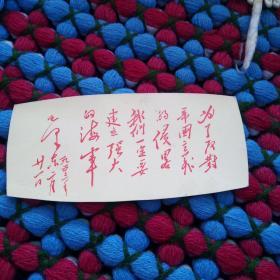 为了反对
帝国主义
的侵略
我们一定要
建立强大
的海军
毛泽东
一九五三年二月
廿一日